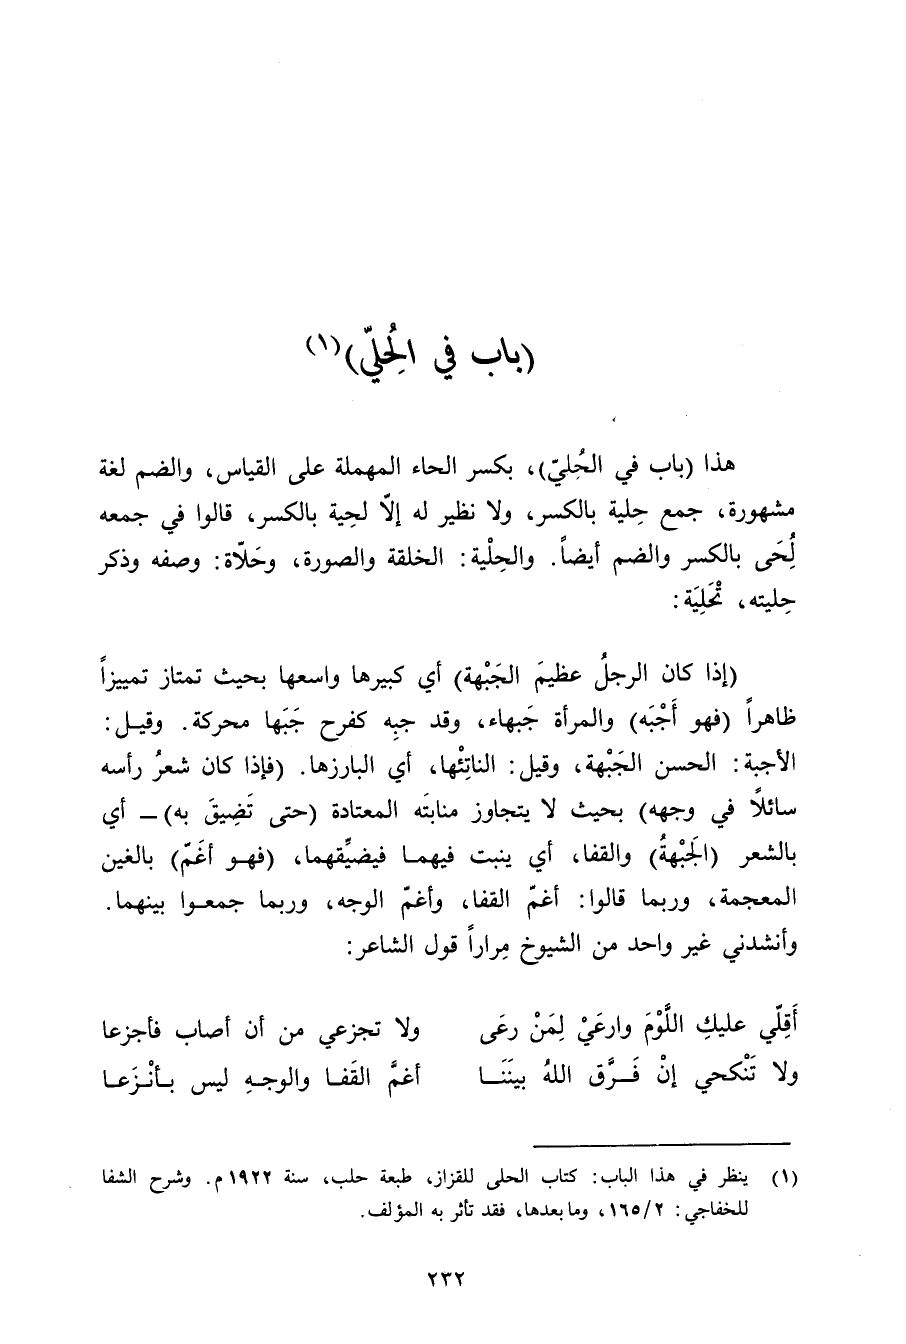 (باب في الُحِليّ)(١)
هذا (باب في الحُليّ)، بكسر الحاء المهملة على القياس، والضم لغة
مشهورة، جمع حِلية بالكسر، ولا نظير له إلاّ لحِية بالكسر، قالوا في جمعه
لُحَى بالكسر والضم أيضاً. والحِلْية: الخلقة والصورة، وحَلاّة: وصفه وذكر
حِليته، تْحَلِيَة:
(إذا كان الرجلُ عظيمَ الجَبْهة) أي كبيرها واسعها بحيث تمتاز تمييزاً
ظاهراً (فهو أَجْبَه) والمرأة جَبهاء، وقد جبِه كفرح جَبَها محركة. وقيـل:
الأجبة: الحسن الجَبْهة، وقيل: الناتِئْها، أي البارزها. (فإذا كان شعرُ رأسه
سائلاً في وجهه) بحيث لا يتجاوز منابتَه المعتادة (حتى تَضِيقَ به) ــ أي
بالشعر (الجَبْهةُ) والقفا، أي ينبت فيهمـا فيضيِّقهما، (فهـو أغَمّ) بالغين
المعجمة، وربما قالوا: أغمّ القفا، وأغمّ الوجه، وربما جمعـوا بينهما.
وأنشدني غير واحد من الشيوخ مِراراً قول الشاعر:
أَقِلّي عليكِ اللَّوْمَ وارعَيْ لِمَنْ رعَى ولا تجزعي من أن أصاب فأجزعا
ولا تَنْكحي إنْ فَـرَّق اللهُ بينَنَـا أغمَّ القَفـا والوجـهِ ليس بـأنْـزَعـا
(١) ينظر في هذا الباب: كتاب الحلى للقزاز، طبعة حلب، سنة ١٩٢٢م. وشرح الشفا
للخفاجي: ١٦٥/٢، وما بعدها، فقد تأثر به المؤلف.
٢٣٢